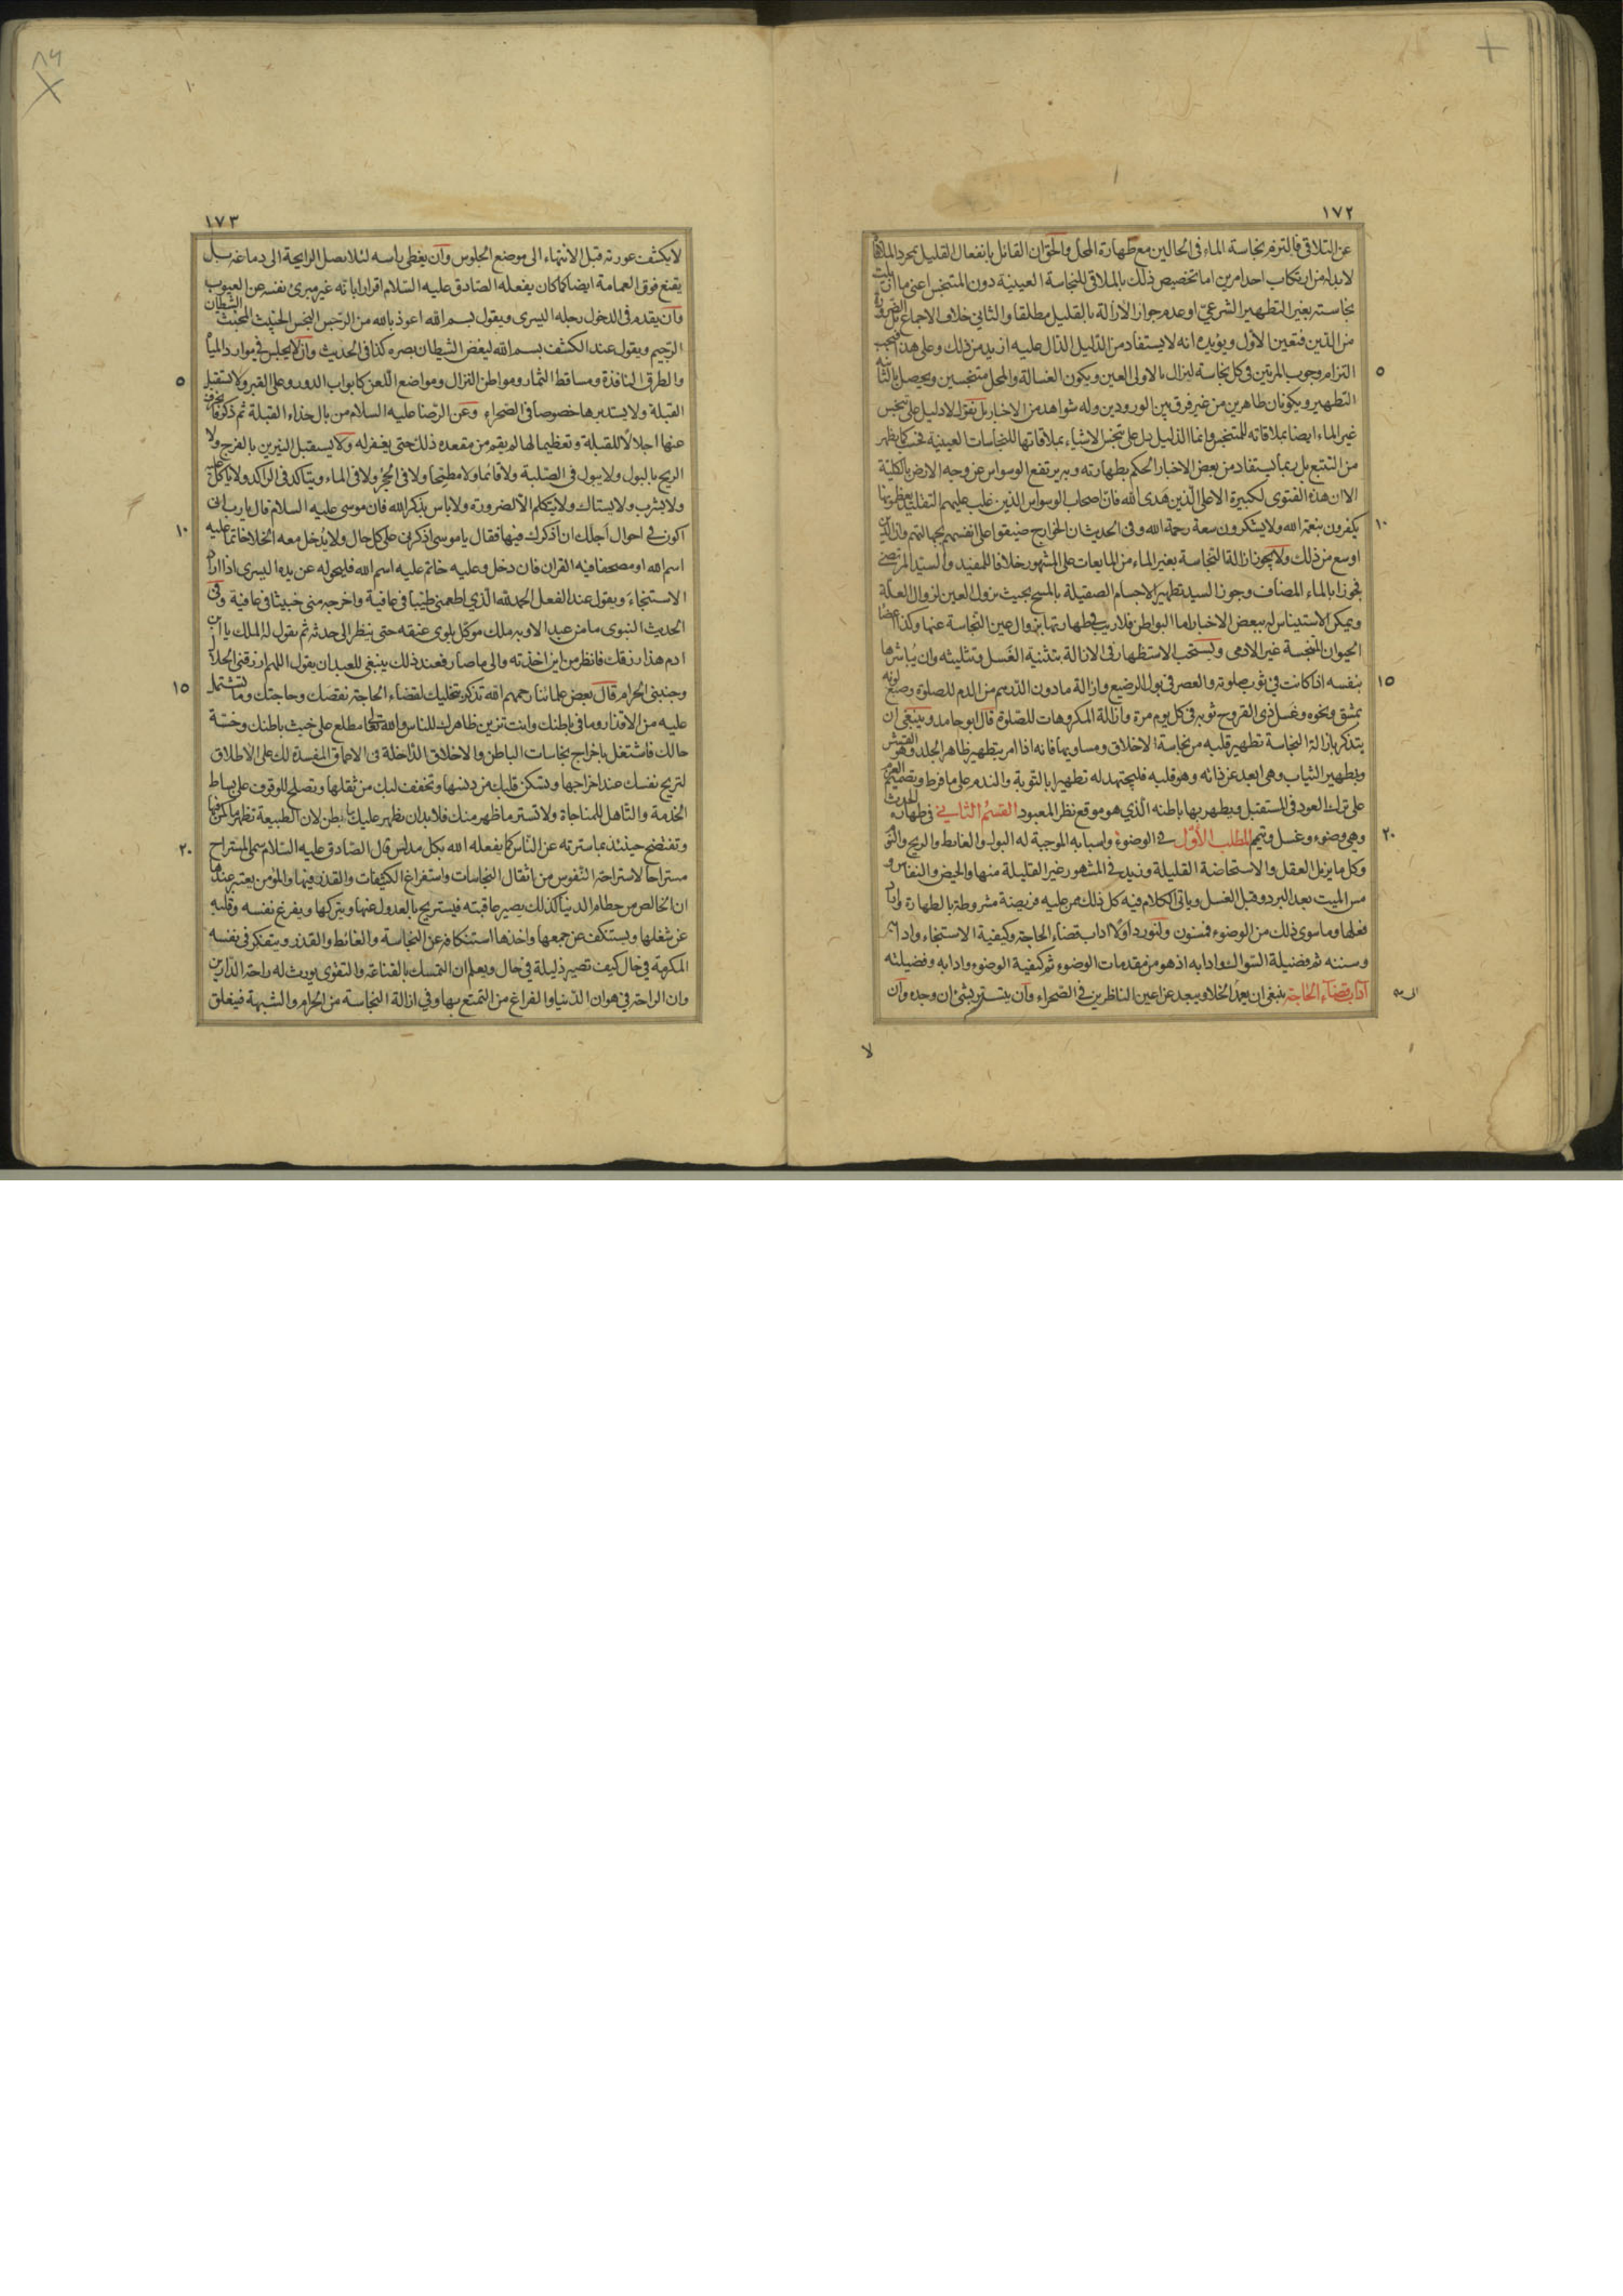 ١٧٢
عن التلاقي فالتزم بنجاسة الماء في الحالين مع طهارة المحل والحق ان القائل بانفعال القليل بمجرد الملاقاة
لابد له من ارتكاب احد امرين اما تخصيص ذلك بالملاقي للنجاسة العينية دون المتنجس اعني ما اثبت
نجاسته بغير التطهير الشرعي او عدم جواز الازالة بالقليل مطلقا والثاني خلاف الاجماع بل الضرورة
من الدين فتعين الاول ويؤيده انه لا يستفاد من الدليل الدال عليه ازيد من ذلك وعلى هذا فيجب
٥
التزام وجوب المرتين في كل نجاسة ليزال بالاولى العين ويكون الغسالة والمحل متنجسين ويحصل بالثانية
التطهير ويكونان طاهرين من غير فرق بين الورودين وله شواهد من الاخبار بل نقول لا دليل على تنجس
غير الماء ايضا بملاقاته للمتنجس وانما الدليل دل على تنجس الاشياء بملاقاتها للنجاسات العينية فحسب كما يظهر
من التتبع بل ربما يستفاد من بعض الاخبار الحكم بطهارته وبه يرتفع الوسواس عن وجه الارض بالكلية
الا ان هذه الفتوى لكبيرة الا على الذين هدى الله فان اصحاب الوسواس الذين غلب عليهم التقليد يعظمونها
١٠
يكفرون بنعمة الله ولا يشكرون سعة رحمة الله وفي الحديث ان الخوارج ضيقوا على انفسهم بجهالتهم وان الدين
اوسع من ذلك ولا يجوز ازالة النجاسة بغير الماء من المايعات على المشهور خلافا للمفيد والسيد المرتضى
فجوزا بالماء المضاف وجوز السيد تطهير الاجسام الصقيلة بالمسح بحيث يزول العين لزوال العلة
ويمكن الاستيناس له ببعض الاخبار اما البواطن فلا ريب في طهارتها بزوال عين النجاسة عنها وكذا اعضاء
الحيوان النجسة غير الادمى ويستحب الاستظهار في الازالة بتثنية الغسل وتثليثه وان يباشرها
١٥
بنفسه اذا كانت في ثوب صلوته والعصر في بول الرضيع وازالة ما دون الدرهم من الدم للصلوة وصبغ لونه
بمشق ونحوه وغسل ذي القروح ثوبه في كل يوم مرة وازالة المكروهات للصلوة قال ابو حامد وينبغي ان
يتذكر بازالة النجاسة تطهير قلبه من نجاسة الاخلاق ومساويها فانه اذا امر بتطهير ظاهر الجلد وهو القشر
وبطهير الثياب وهي ابعد عن ذاته وهو قلبه فليجتهد له تطهيرا بالتوبة والندم على ما فرط وتصميم العزم
على ترك العود في المستقبل ويطهر بها باطنه الذي هو موقع نظر المعبود القسم الثاني في طهارة الحدث
٢٠
وهي وضوء وغسل وتيمم المطلب الاول في الوضوء واسبابه الموجبة له البول والغايط والريح والنوم
وكل ما يزيل العقل والاستحاضة القليلة وزيد في المشهور غير القليلة منها والحيض والنفاس و
مس الميت بعد البرد وقبل الغسل وياتي الكلام فيه كل ذلك ممن عليه فريضة مشروطة بالطهارة واراد
فعلها وما سوى ذلك من الوضوء فمسنون ولنورد اولا اداب قضاء الحاجة وكيفية الاستنجاء وادابه
وسننه ثم فضيلة السواك وادابه اذ هو من مقدمات الوضوء ثم كيفية الوضوء وادابه وفضيلته
اداب قضاء الحاجة ينبغي ان يعد الخلا ويبعد عن اعين الناظرين في الصحراء وان يتستر بشئ ان وجده وان
لا
١٧٣
لا يكشف عورته قبل الانتهاء الى موضع الجلوس وان يغطى راسه لئلا يصل الرايحة الى دماغه بل
يقنع فوق العمامة ايضا كما كان يفعله الصادق عليه السلام اقرارا بانه غير مبرئ نفسه عن العيوب
وان يقدم في الدخول رجله اليسرى ويقول بسم الله اعوذ بالله من الرجس النجس الخبيث المخبث الشيطان
الرجيم ويقول عند الكشف بسم الله ليغض الشيطان بصره كذا في الحديث وان لا يجلس في موارد المياه
٥
والطرق النافذة ومساقط الثمار ومواطن النزال ومواضع اللعن كابواب الدور وعلى القبر ولا يستقبل
القبلة ولا يستدبرها خصوصا في الصحراء وعن الرضا عليه السلام من بال حذاء القبلة ثم ذكر فانحرف
عنها اجلالا للقبلة وتعظيما لها لم يقم من مقعده ذلك حتى يغفر له ولا يستقبل النيرين بالفرج ولا
الريح بالبول ولا يبول في الصلبة ولا قائما ولا مطمحا ولا في الجحر ولا في الماء ويتاكد في الراكد ولا ياكل عليه
ولا يشرب ولا يستاك ولا يتكلم الا لضرورة ولا باس بذكر الله فان موسى عليه السلام قال يا رب انى
١٠
اكون في احوال اجلك ان اذكرك فيها فقال يا موسى اذكرني على كل حال ولا يدخل معه الخلا خاتما عليه
اسم الله او مصحفا فيه القران فان دخل وعليه خاتم عليه اسم الله فليحوله عن يده اليسرى اذا اراد
الاستنجاء ويقول عند الفعل الحمد لله الذي اطعمني طيبا في عافية واخرجه منى خبيثا في عافية وفي
الحديث النبوى ما من عبد الا وبه ملك موكل يلوى عنقه حتى ينظر الى حدثه ثم يقول له الملك يا ابن
ادم هذا رزقك فانظر من اين اخذته والى ما صار فعند ذلك ينبغى للعبد ان يقول اللهم ارزقني الحلال
١٥
وجنبني الحرام قال بعض علمائنا رحمهم الله تذكر بتخليك لقضاء الحاجة نقصك وحاجتك وما تشتمل
عليه من الاقذار وما في باطنك وانت تزين ظاهرك للناس والله تعالى مطلع على خبث باطنك وخسة
حالك فاشتغل باخراج نجاسات الباطن والاخلاق الداخلة في الاعماق المفسدة لك على الاطلاق
لتريح نفسك عند اخراجها وتسكن قلبك من دنسها وتخفف لبك من ثقلها وتصلح للوقوف على بساط
الخدمة والتاهل للمناجاة ولا تستر ما ظهر منك فلا بد ان يظهر عليك ما بطن لان الطبيعة تظهر
٢٠
وتفتضح حينئذ بما سترته عن الناس كما يفعله الله بكل مدلس قال الصادق عليه السلام سمى المستراح
مستراحا لاستراحة النفوس من اثقال النجاسات واستفراغ الكثيفات والقذر فيها والمؤمن يعتبر عندها
ان الخالص من حطام الدنيا كذلك يصير عاقبته فيستريح بالعدول عنها ويتركها ويفرغ نفسه وقلبه
عن شغلها ويستنكف عن جمعها واخذها استنكافه عن النجاسة والغائط والقذر ويتفكر في نفسه
المكرمة في حال كيف تصير ذليلة في حال ويعلم ان التمسك بالقناعة والتقوى يورث له راحة الدارين
وان الراحة في هوان الدنيا والفراغ من التمتع بها وفي ازالة النجاسة من الحرام والشبهة فيغلق